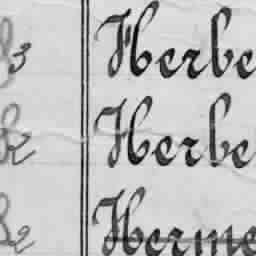 3 Herbe
2 Herbe
2 Herme